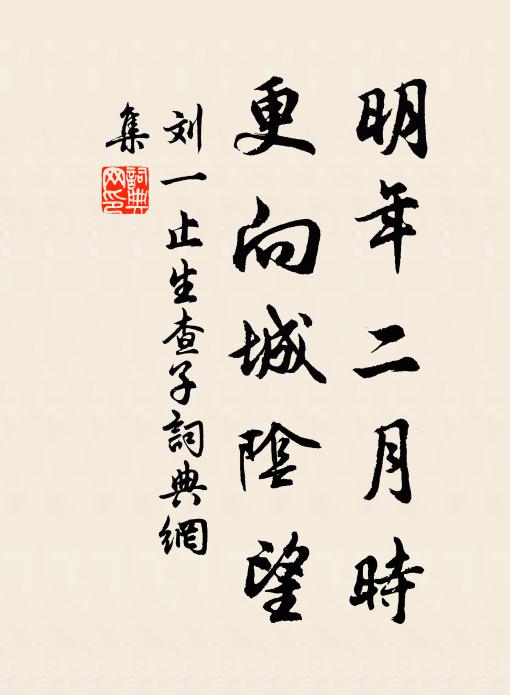 明年二月時
更向城陰望
刘一止生查子詞典網
集
詞典網印